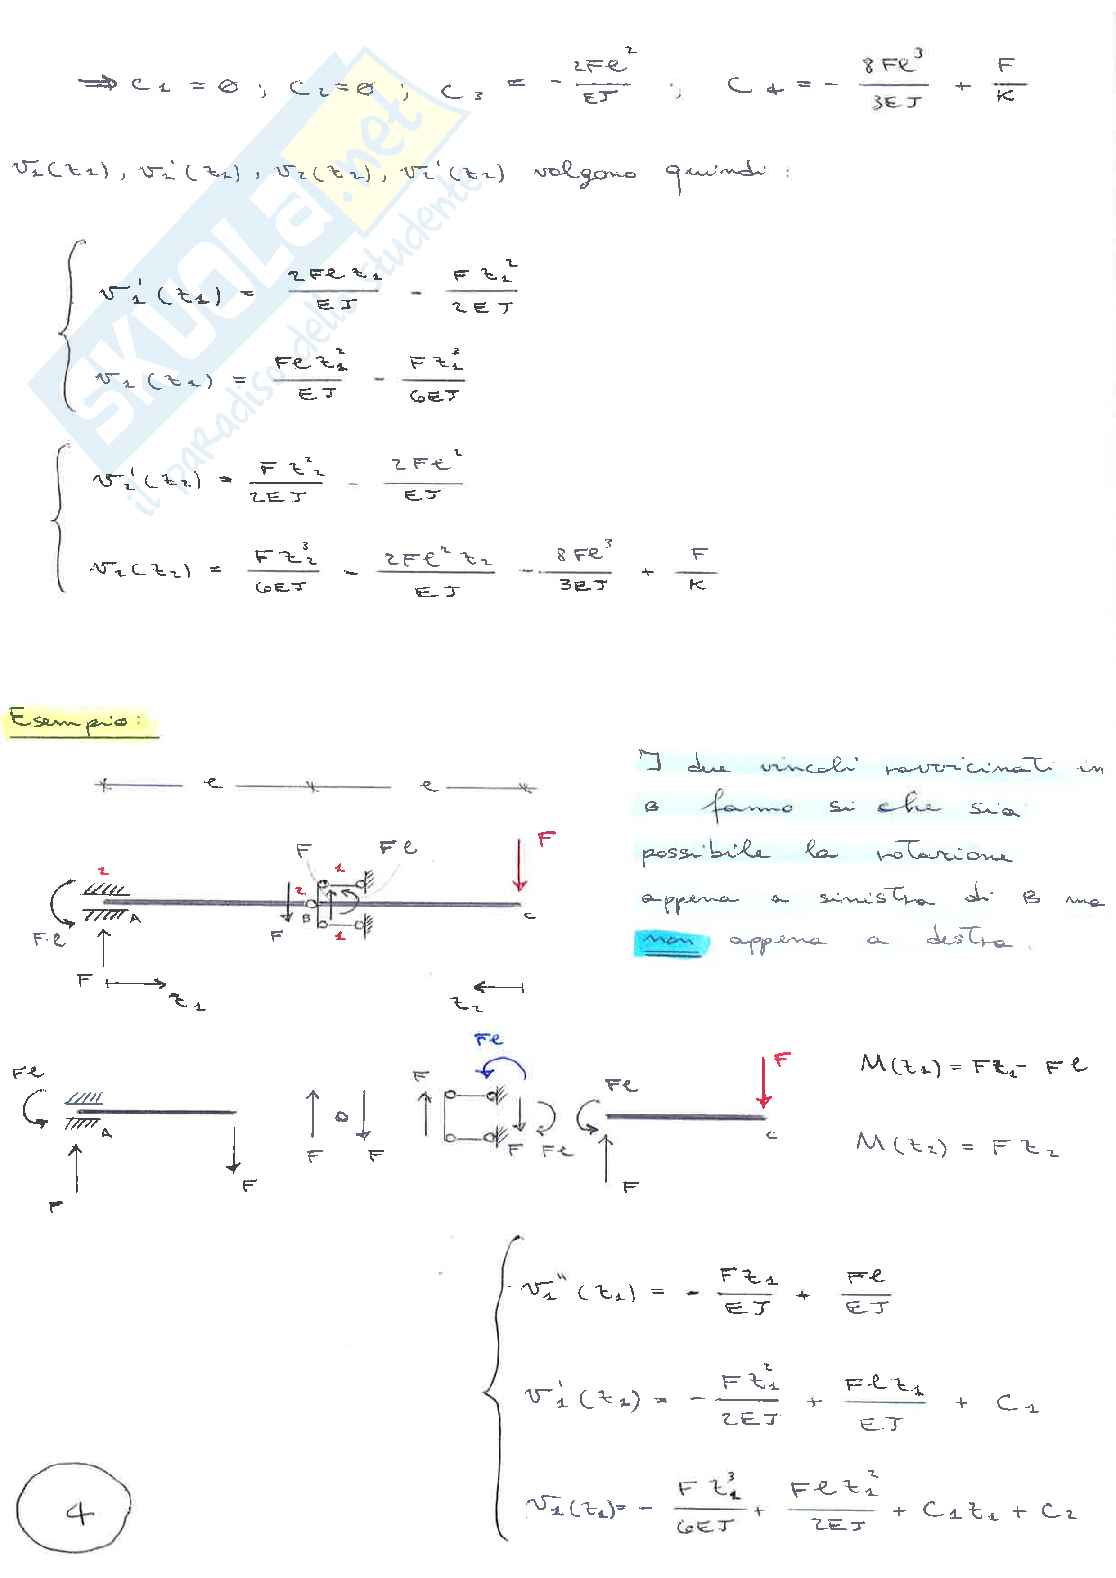 ⇒ C₁ = ∅ ; C₂ = ∅ ; C₃ = - 2Fl²/EJ ; C₄ = - 8Fl³/3EJ + F/K
v₁(z₁), v₁'(z₁), v₂(z₂), v₂'(z₂) valgono quindi:
v₁'(z₁) = 2Flz₁/EJ - Fz₁²/2EJ
v₁(z₁) = Flz₁²/EJ - Fz₁³/6EJ
v₂'(z₂) = Fz₂²/2EJ - 2Fl²/EJ
v₂(z₂) = Fz₂³/6EJ - 2Fl²z₂/EJ - 8Fl³/3EJ + F/K
SKUOLA.net
il paradiso dello studente
Esempio:
l l
I due vincoli ravvicinati in
B fanno sì che sia
possibile la rotazione
appena a sinistra di B ma
non appena a destra.
F Fl F
2 2 1
A B C
F·l F 1
F
z₁ z₂
Fl A F F
F F
F Fl F Fl
Fl F F C
M(z₁) = Fz₁ - Fl
M(z₂) = Fz₂
v₁''(z₁) = - Fz₁/EJ + Fl/EJ
v₁'(z₁) = - Fz₁²/2EJ + Flz₁/EJ + C₁
v₁(z₁) = - Fz₁³/6EJ + Flz₁²/2EJ + C₁z₁ + C₂
4